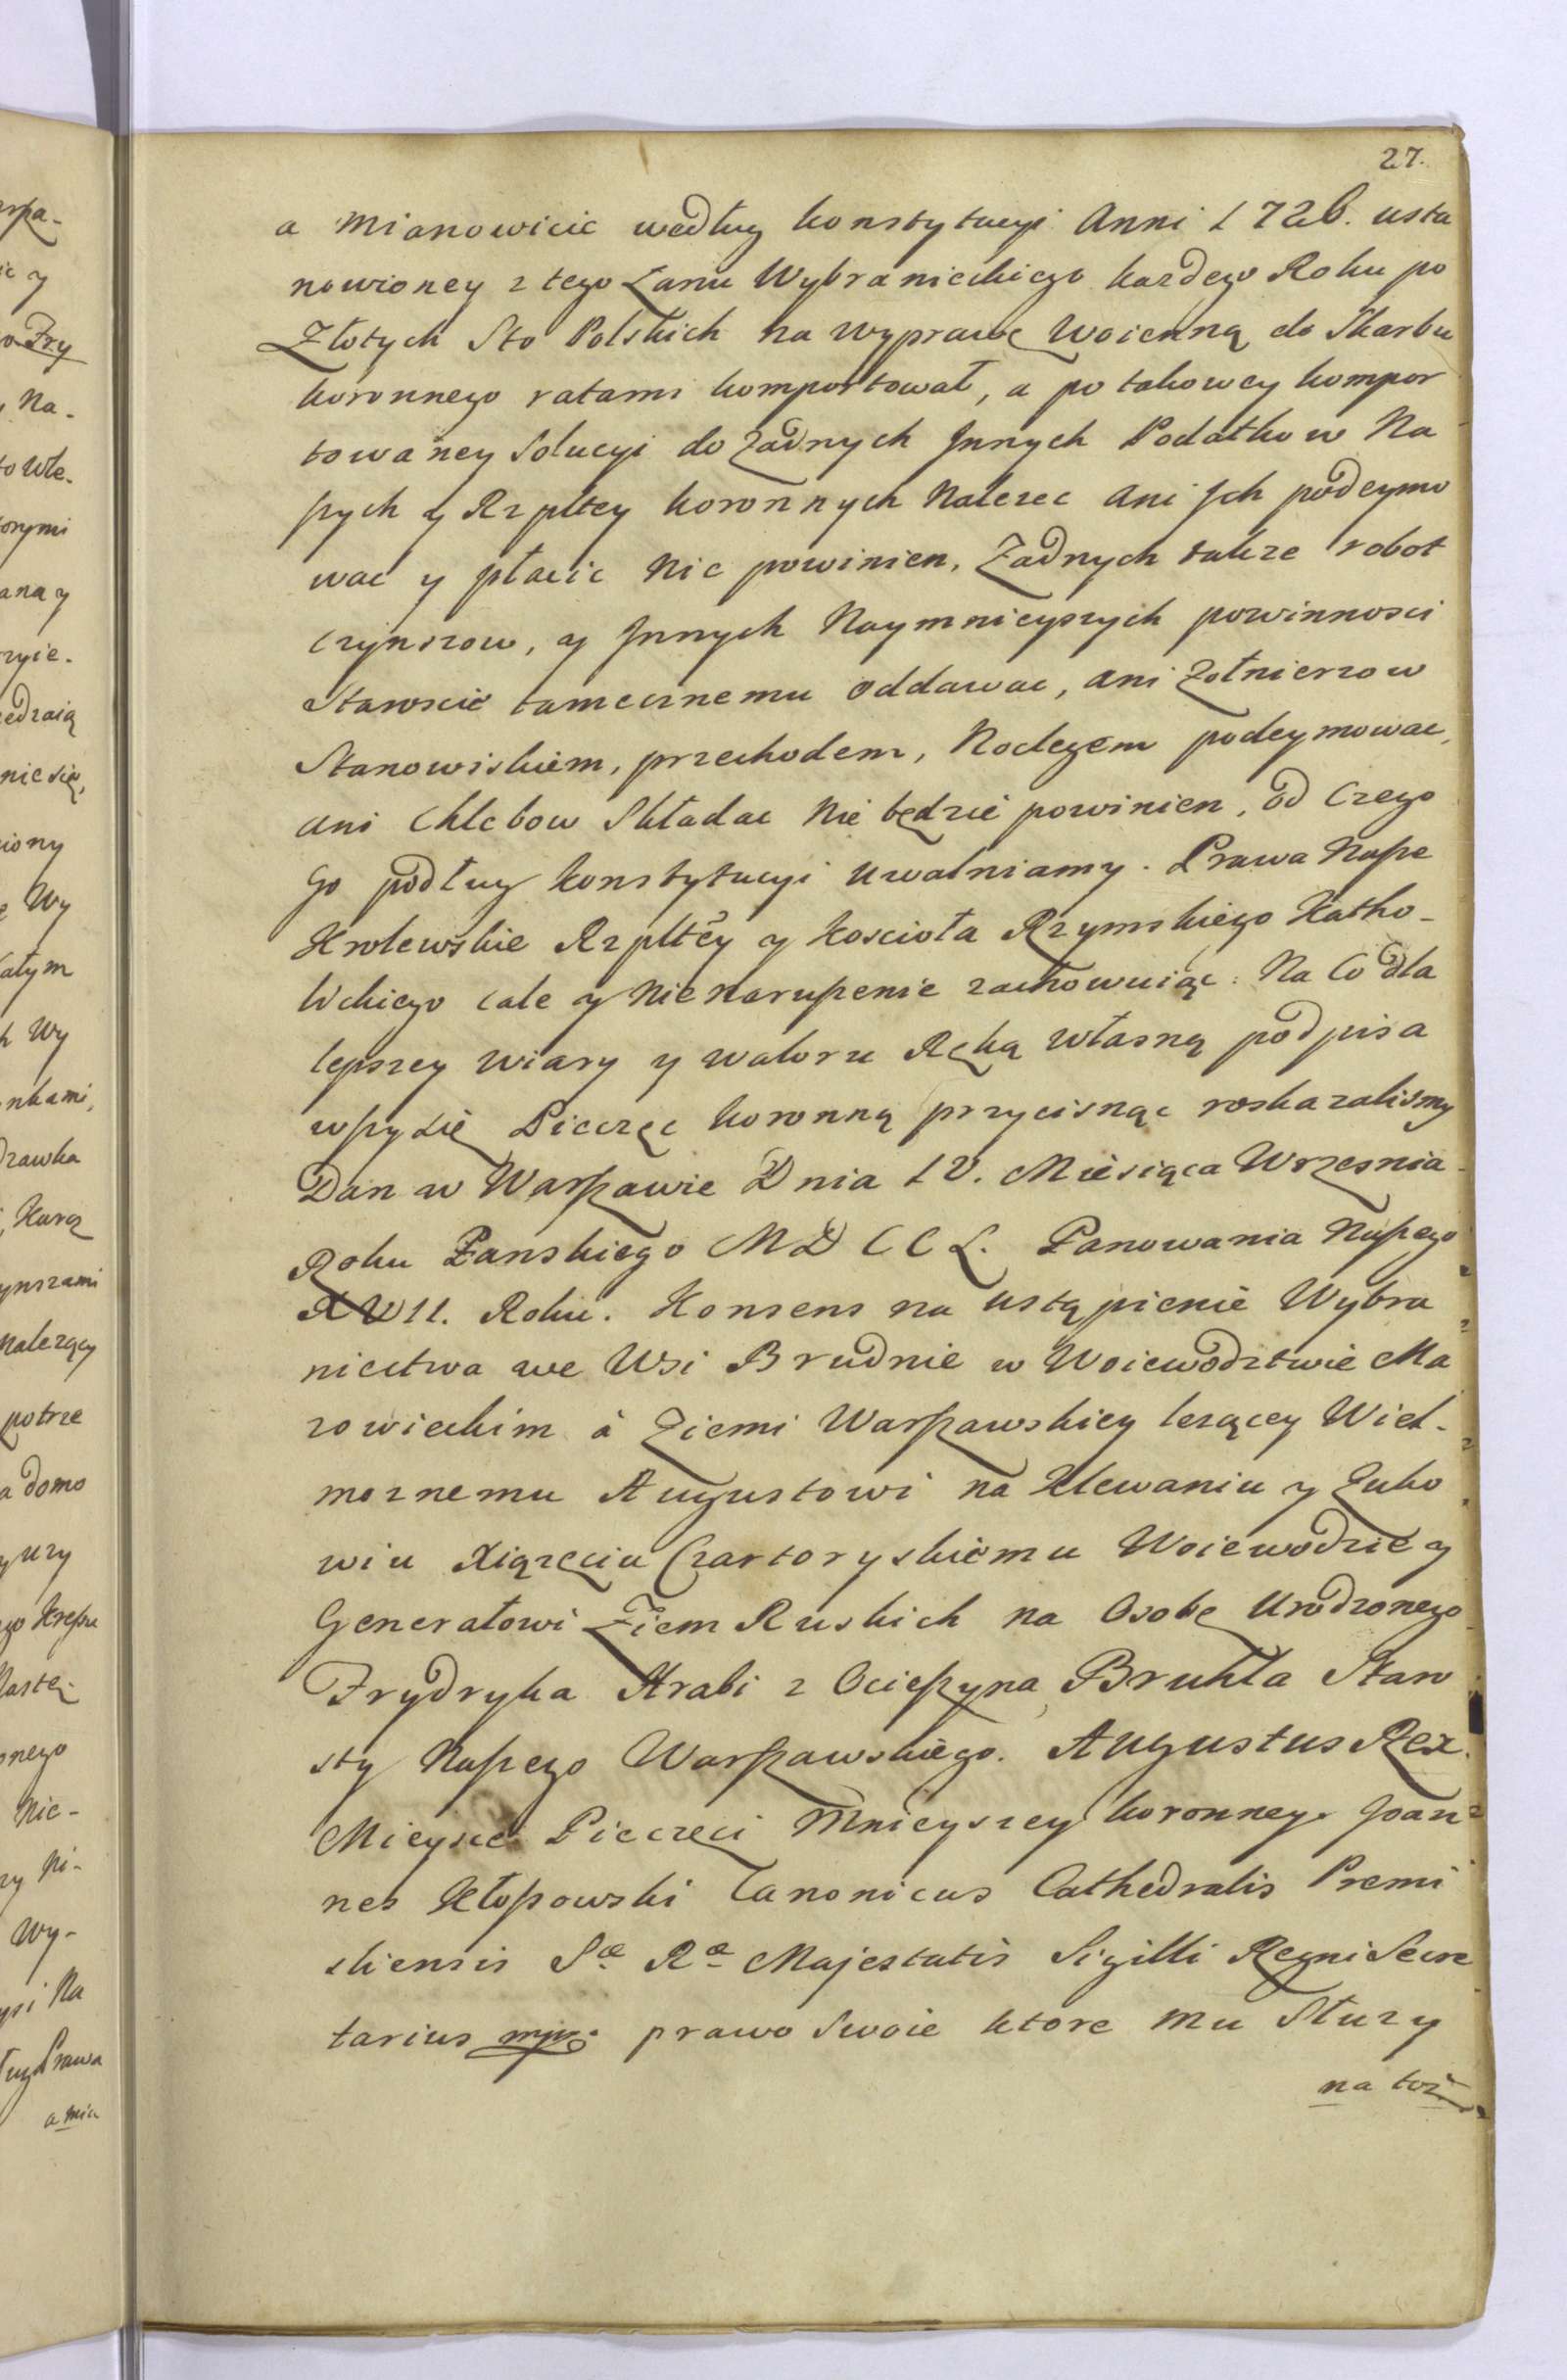 27.
a mianowicie według konstytucyi Anni 1726. usta
nowioney z tego Łanu Wybranieckiego każdego Roku po
Złotych Sto Polskich na wyprawę Woienną do Skarbu
koronnego ratami komportował, a po takowey kompor
towaney Solucyi do żadnych Innych Podatkow Na
szych y Rzpltey koronnych Nalezec ani Ich podeymo
wac y płacic Nie powinien, Zadnych takze robot
czynszow, y Innych Naymnieyszych powinnosci
Staroscie tamecznemu oddawac, ani Zołnierzow
Stanowiskiem, przechodem, Noclegem podeymowac,
ani Chlebow Składac Nie będzie powinien, od Czego
Go podług konstytucyi uwalniamy. Prawa Nasze
Krolewskie Rzpltey y koscioła Rzymskiego Katho-
lickiego cale y Nienaruszenie zachowuiąc. Na Co dla
lepszey wiary y waloru Ręką własną podpisa
wszy się Pieczęc koronną przycisnąc roskazalismy
Dan w Warszawie Dnia IV. Miesiąca Wrzesnia
Roku Panskiego MDCCL. Panowania Naszego
XVII. Roku. Konsens na ustąpienie Wybra
niectwa we Wsi Brudnie w Woiewodztwie Ma
zowieckim a Ziemi Warszawskiey lezącey Wiel-
moznemu Augustowi na Klewaniu y Zuko
wiu Xiązęciu Czartoryskiemu Woiewodzie y
Generałowi Ziem Ruskich na Osobę Urodzonego
Frydryka Hrabi z Ocieszyna Bruhla Staro
sty Naszego Warszawskiego. Augustus Rex.
Mieysce Pieczęci Mnieyszey koronney. Joan
nes Kłopowski Canonicus Cathedralis Premi
sliensis Sæ Ræ Majestatis Sigilli Regni Secre
tarius mpr. prawo Swoie ktore mu Słuzy
na toż